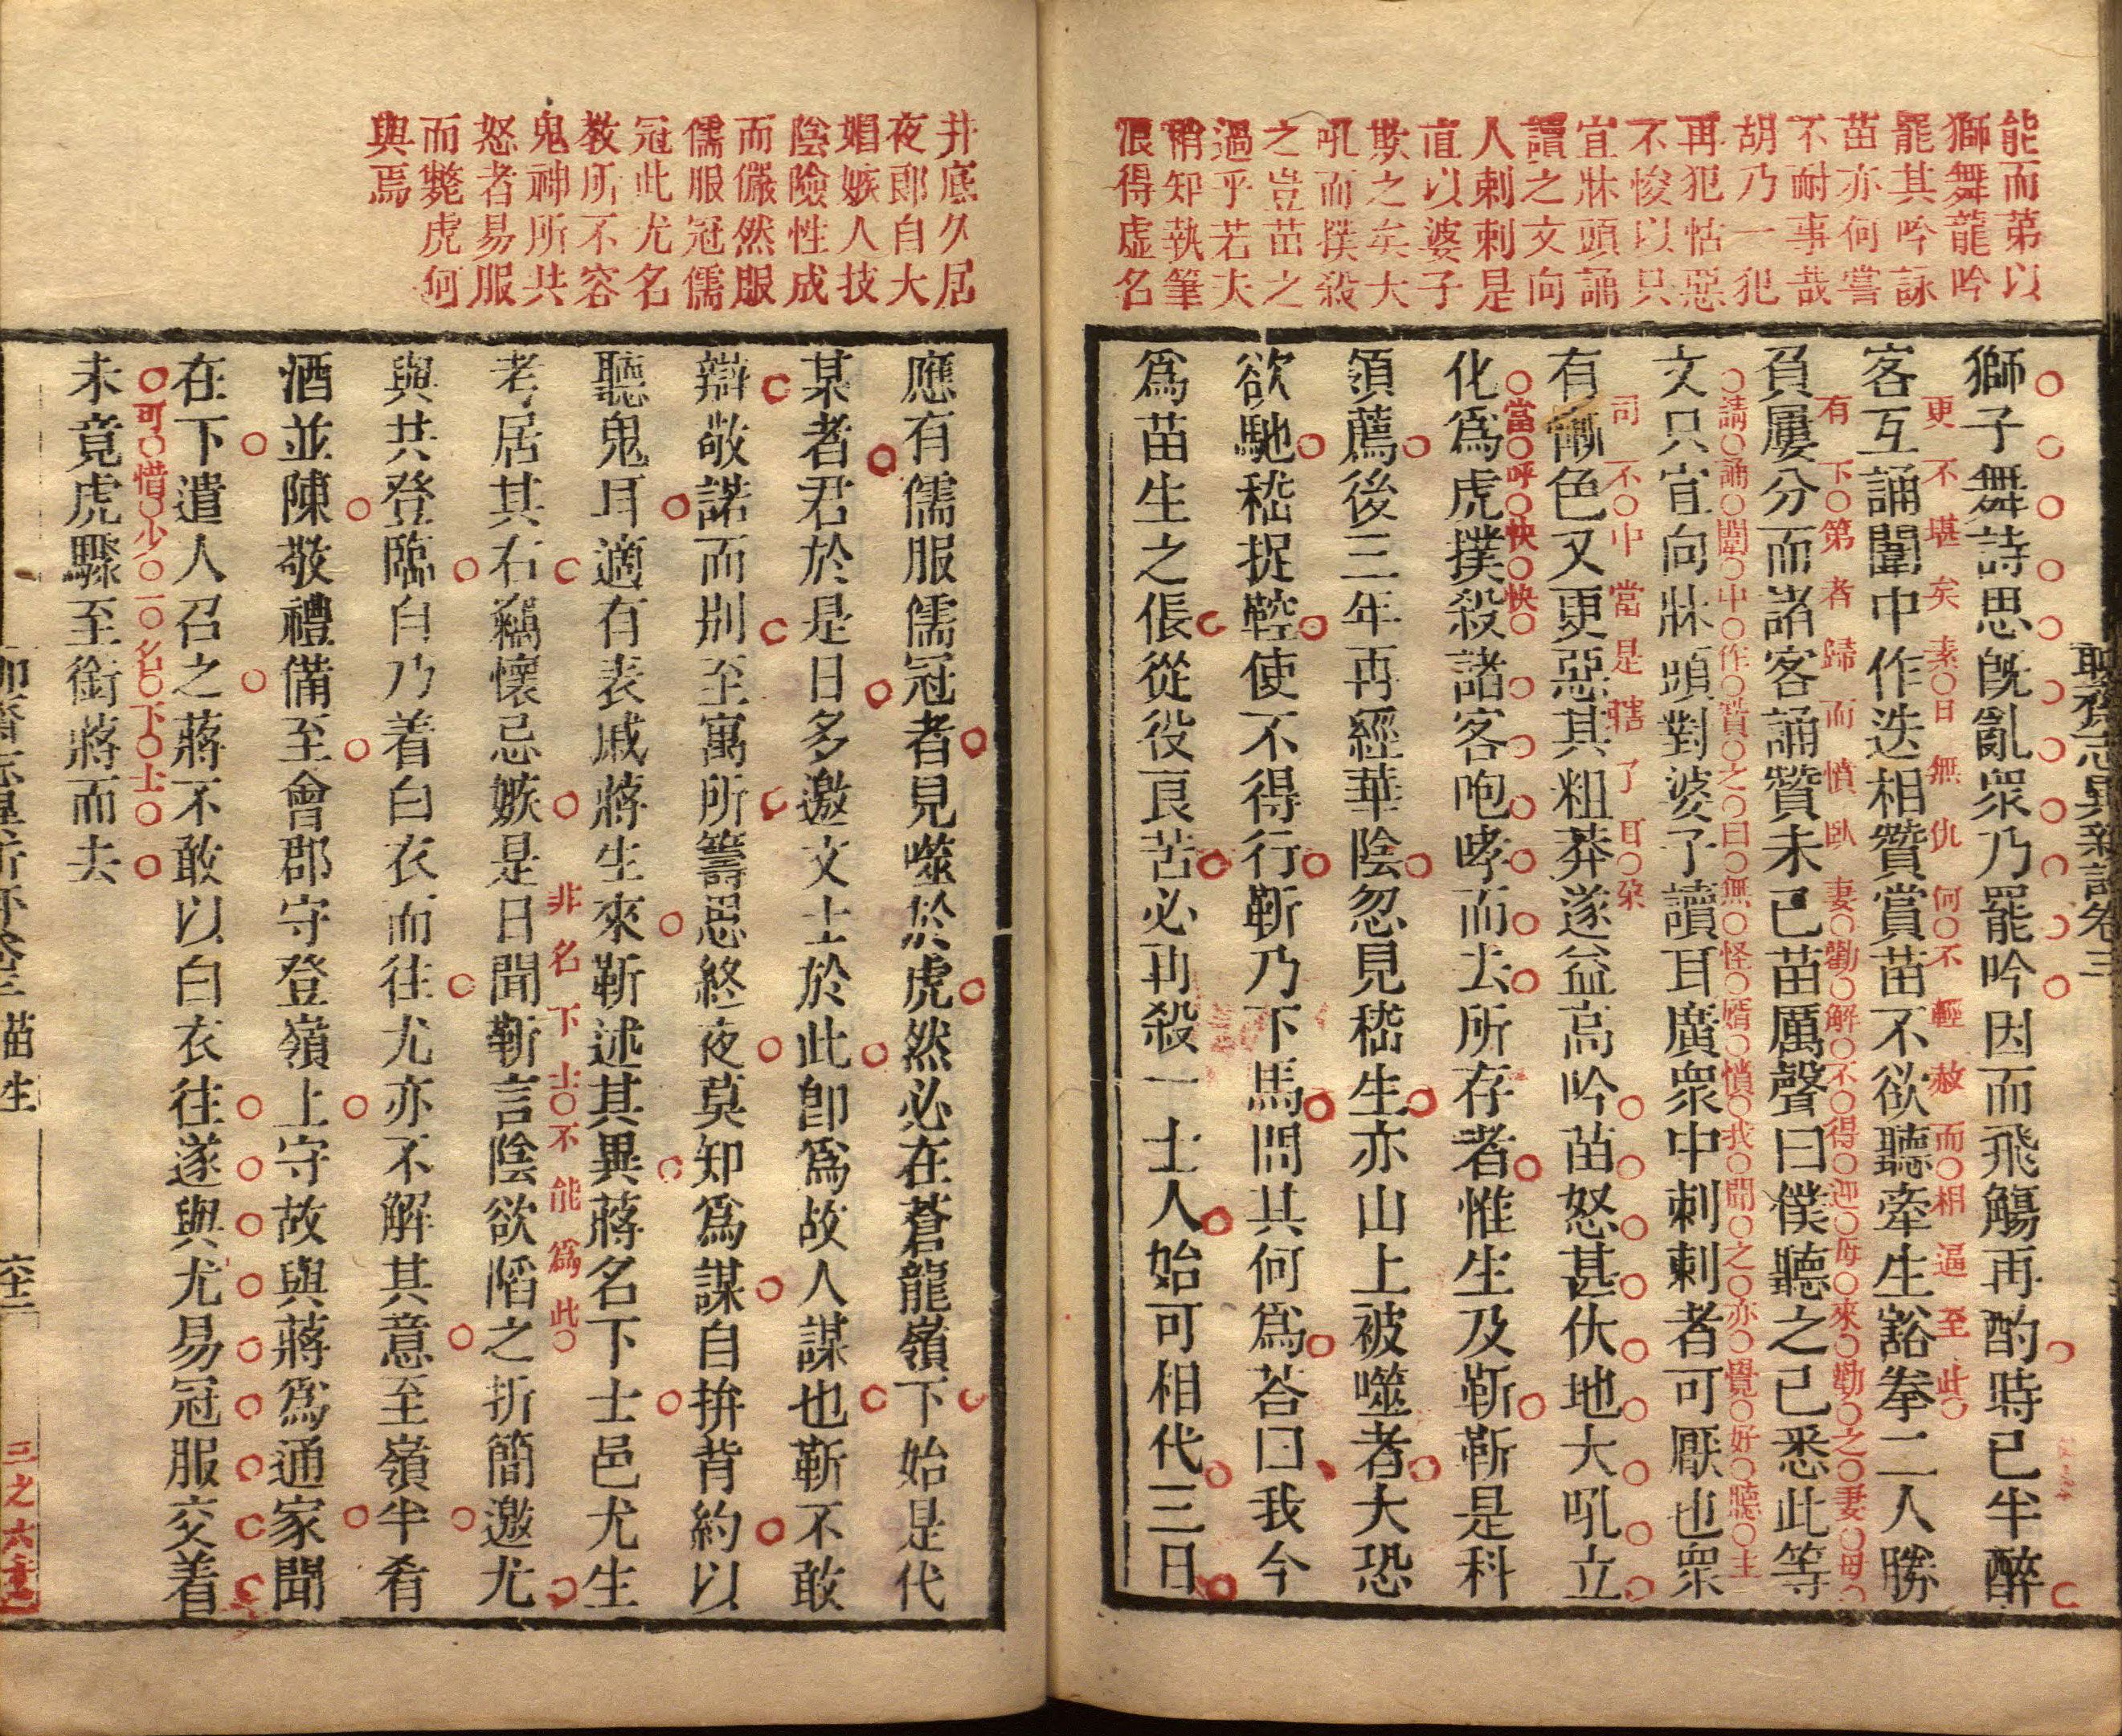 能而第以
獅舞龍吟
罷其吟詠
苗亦何嘗
不耐事哉
胡乃一犯
再犯怙惡
不悛以只
宜牀頭誦
讀之文向
人剌剌是
直以婆子
欺之矣大
吼而撲殺
之豈苗之
過乎若夫
稍知執筆
浪得虛名
獅子舞詩思旣亂衆乃罷吟因而飛觴再酌時已半醉
客互誦闈中作迭相贊賞苗不欲聽牽生豁拳二人勝
更不堪矣素日無仇何不輕赦而相逼至此
負屢分而諸客誦贊未已苗厲聲曰僕聽之已悉此等
有下第者歸而憤臥妻勸解不得迎母來勸之妻母
文只宜向牀頭對婆子讀耳廣衆中刺刺者可厭也衆
請誦闈中作贊之曰無怪壻憤我聞之亦覺好聽主
有慚色又更惡其粗莽遂益高吟苗怒甚伏地大吼立
司不中當是瞎了耳朶
化爲虎撲殺諸客咆哮而去所存者惟生及靳靳是科
當呼快快
領薦後三年再經華陰忽見嵇生亦山上被噬者大恐
欲馳嵇捉鞚使不得行靳乃下馬問其何爲荅曰我今
爲苗生之倀從役良苦必再殺一士人始可相代三日
聊齋志異新評卷三
井底久居
夜郎自大
媢嫉人技
陰險性成
而儼然服
儒服冠儒
冠此尤名
敎所不容
鬼神所共
怒者易服
而斃虎何
與焉
應有儒服儒冠者見噬於虎然必在蒼龍嶺下始是代
某者君於是日多邀文士於此卽爲故人謀也靳不敢
辯敬諾而别至寓所籌思終夜莫知爲謀自拚背約以
聽鬼耳適有表戚蔣生來靳述其異蔣名下士邑尤生
考居其右竊懷忌嫉是日聞靳言陰欲陷之折簡邀尤
非名下士不能爲此
與共登臨自乃着白衣而往尤亦不解其意至嶺半肴
酒並陳敬禮備至會郡守登嶺上守故與蔣爲通家聞
在下遣人召之蔣不敢以白衣往遂與尤易冠服交着
可惜少一名下士
未竟虎驟至銜蔣而去
聊齋志異新評卷三 苗生
三之六